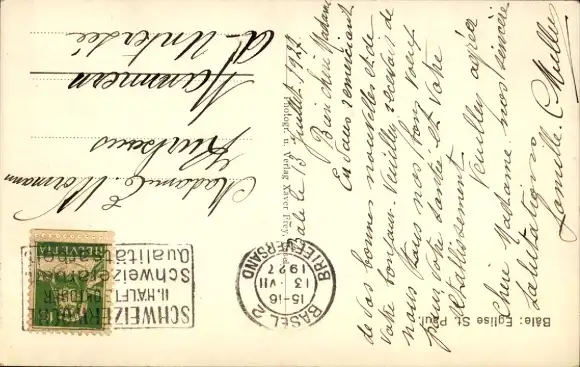 Bâle: Eglise St. Paul.
Bâle 13 Juillet 1927.
Bien chère Madame
En vous remerciant
de vos bonnes nouvelles et de
votre bonjour. Veuillez recevoir de
nous tous nos bons vœux
pour votre santé et votre
rétablissement.
Veuillez agréer
Chère Madame nos sincères
salutations
Famille Müller
Photogr. u. Verlag Xaver Frey,
BASEL 2
15-16
13. VII
1927
BRIEFVERSAND
SCHWEIZERWOCHE
II. HÄLFTE OKTOBER
Schweizerarbeit
Qualitätsarbeit
HELVETIA
Madame E. Normann
Kurhaus
Mammern
a. Untersee